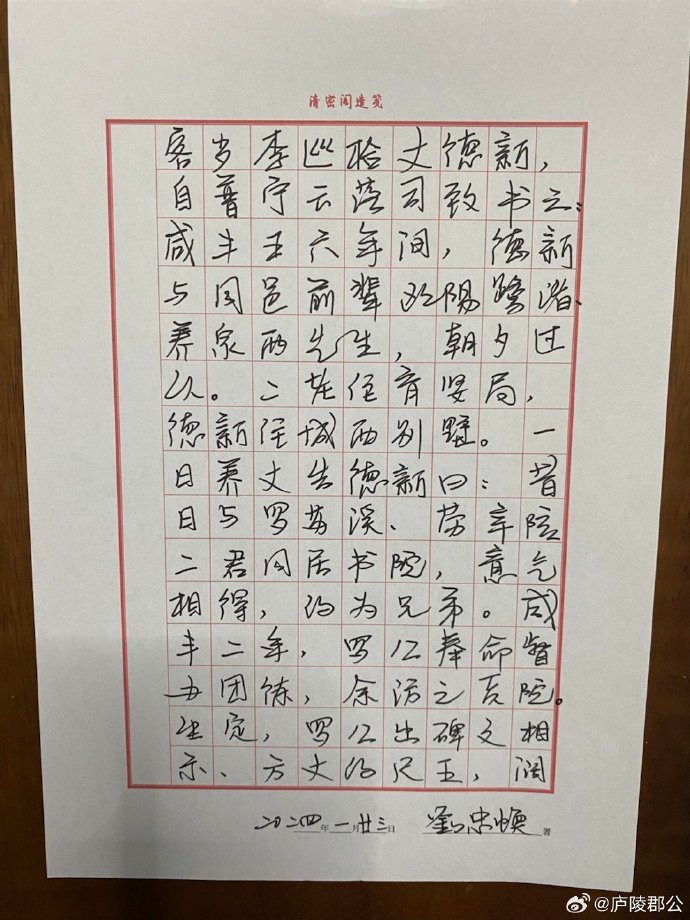 清密阁造笺
客岁李巡检丈德新，
自普宁云落司致书云：
咸丰五六年间，德新
与同邑前辈欧阳鹭渚、
养泉两先生，朝夕过
从。二老住育婴局，
德新住城西别墅。一
日养丈告德新曰：昔
日与罗苏溪、劳辛陔
二君同居书院，意气
相得，约为兄弟。咸
丰二年，罗公奉命督
办团练，余访之贡院。
坐定，罗公出碑文相
示、方丈约尺五，阔
二〇二四年一月廿三日 刘忠焕 署
@庐陵郡公